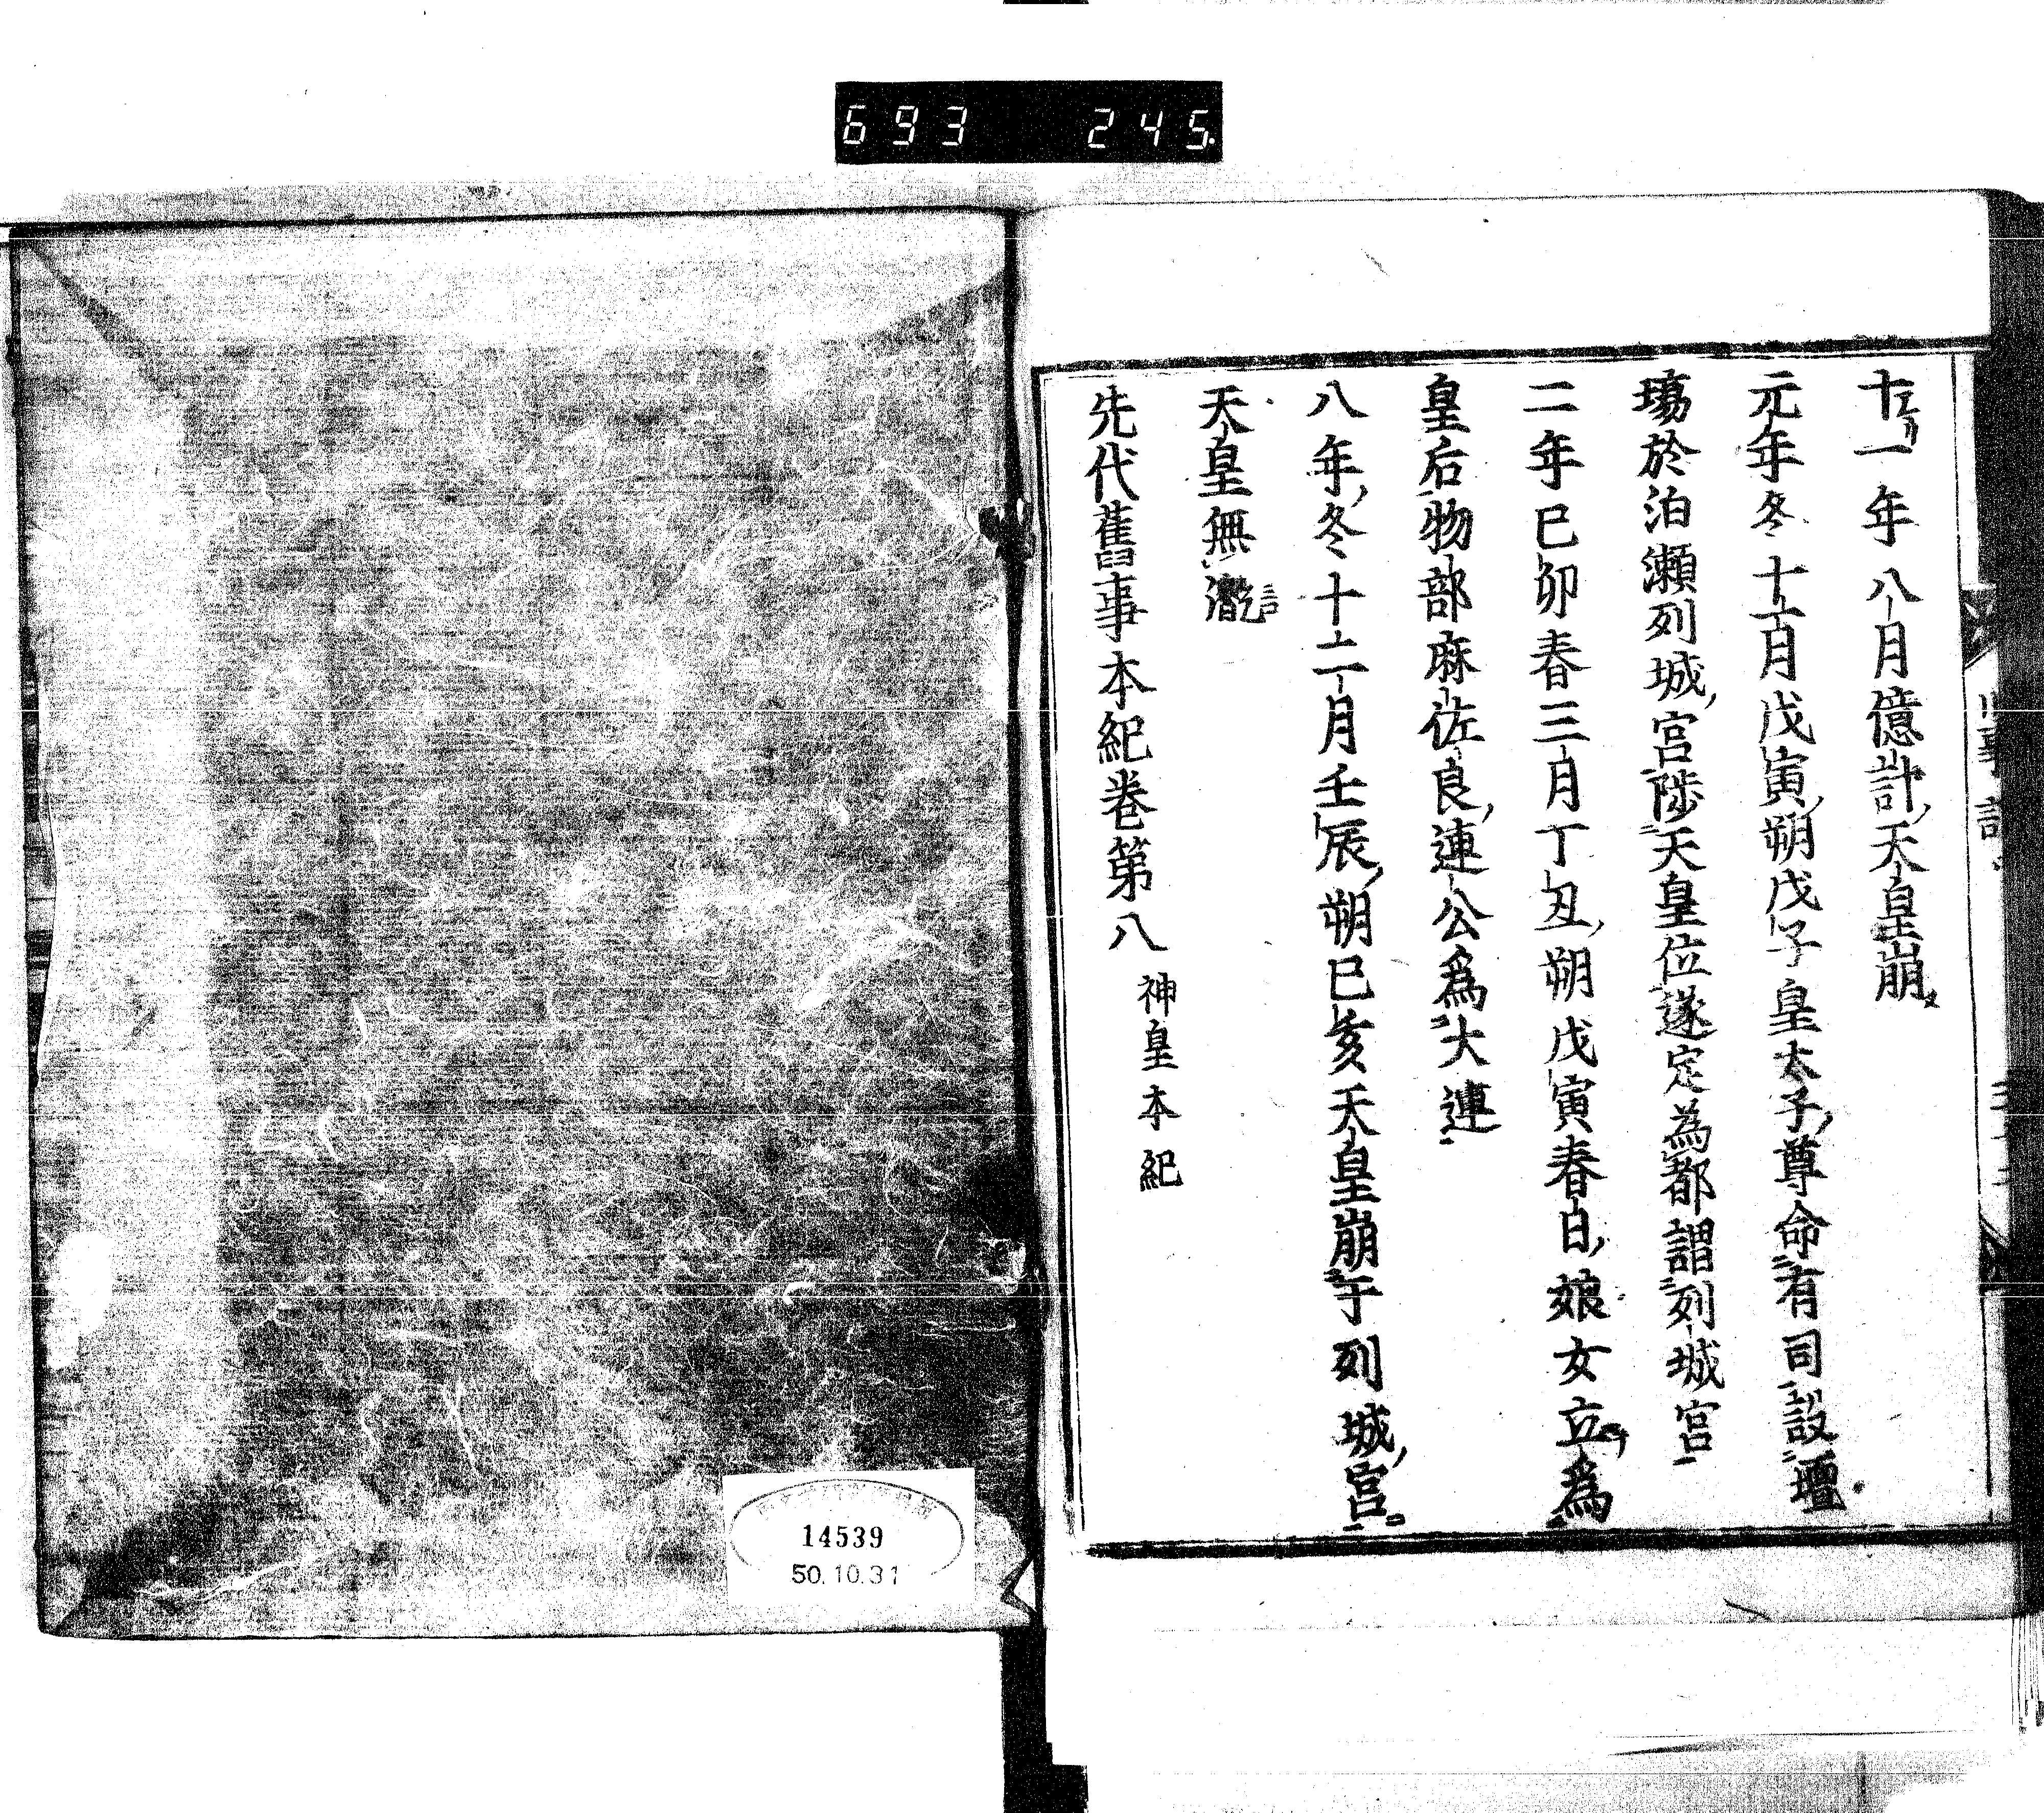 693 245.
十一年八月億計天皇崩
元年冬十二月戊寅朔戊子皇太子尊命有司設壇
場於泊瀬列城宮陟天皇位遂定為都謂列城宮
二年巳卯春三月丁丑朔戊寅春日娘女立爲
皇后物部麻佐良連公爲大連
八年冬十二月壬辰朔巳亥天皇崩于列城宮
天皇無
先代舊事本紀巻第八 神皇本紀
14539
50.10.31